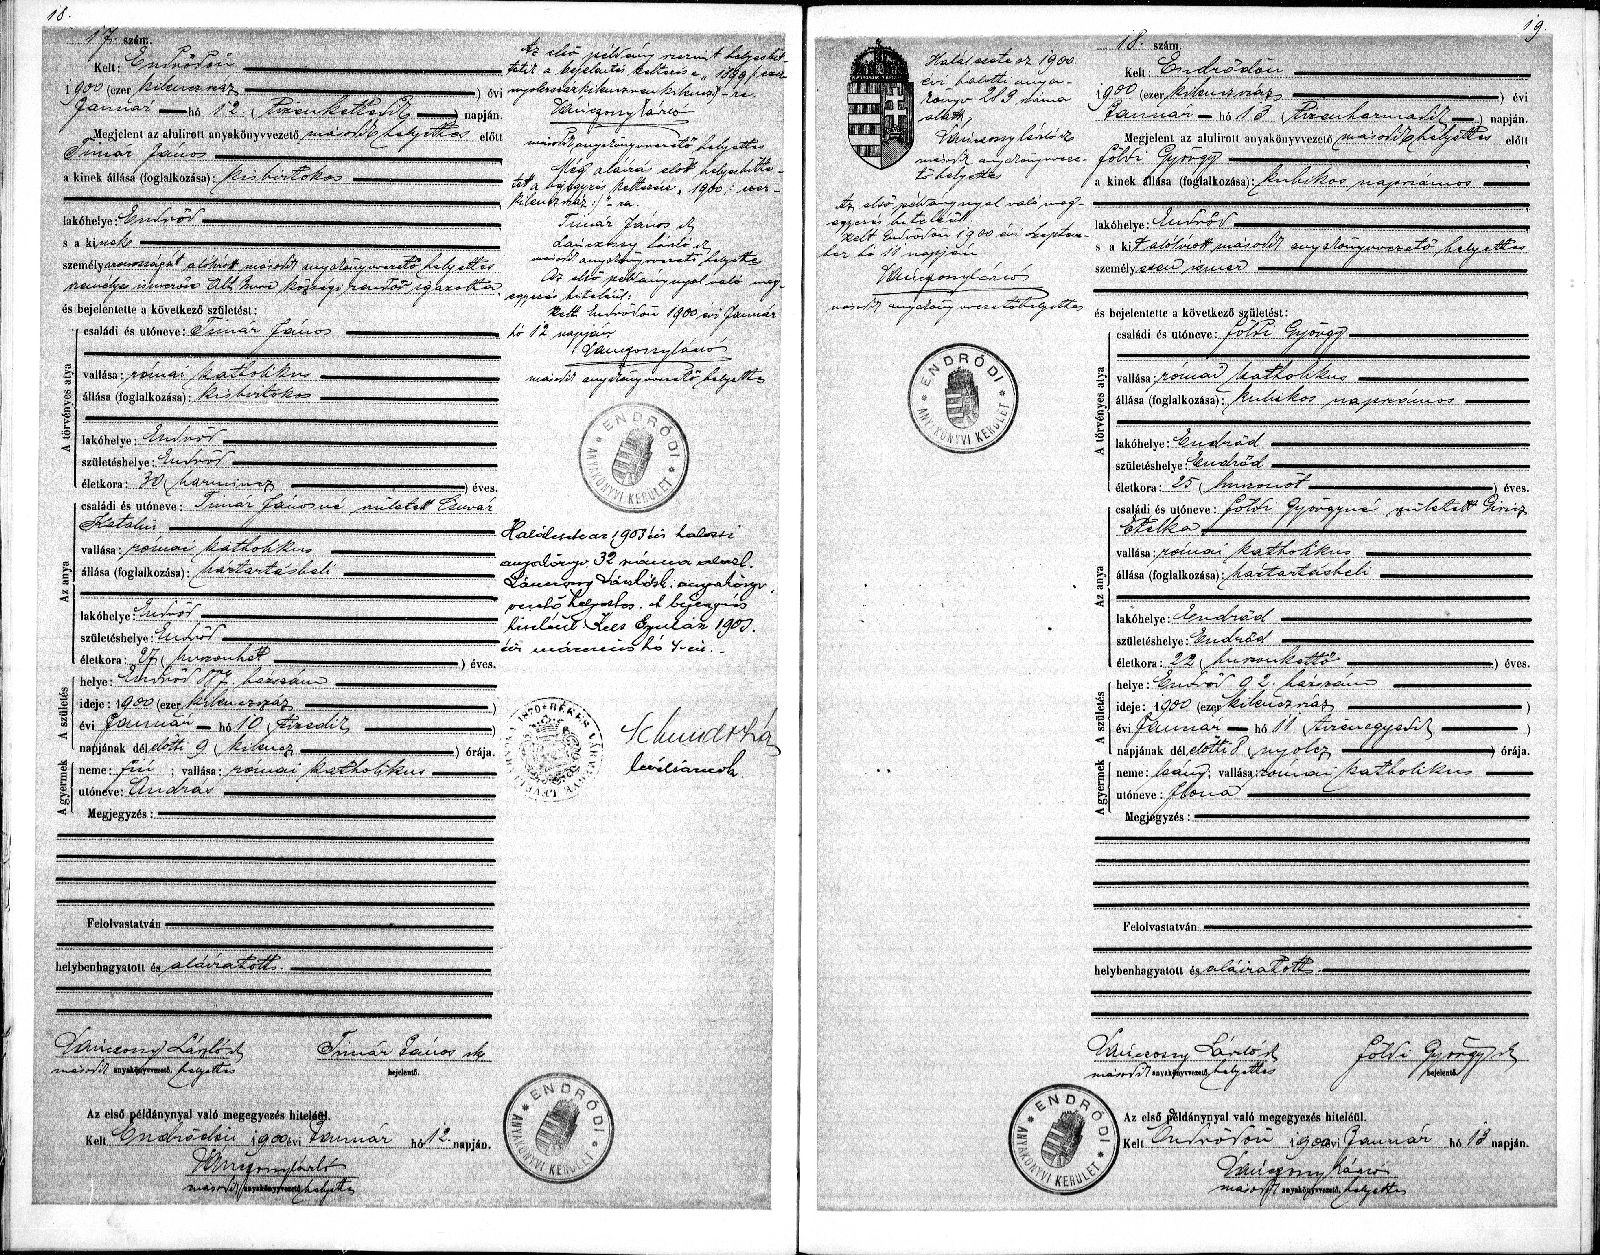 18.
17. szám.
Kelt: Endrődön
1900 (ezer kilenczszáz ) évi
Január hó 12. (tizenkettedik ) napján.
Megjelent az alulirott anyakönyvvezető második helyettes előtt
Timár János
a kinek állása (foglalkozása): kisbirtokos
lakóhelye: Endrőd
s a kinek
személyazonosságát alólirott második anyakönyvvezető helyettes
személyes ismerőse községi rendőr igazolta.
és bejelentette a következő születést:
A törvényes atya
családi és utóneve: Timár János
vallása: római katholikus
állása (foglalkozása): kisbirtokos
lakóhelye: Endrőd
születéshelye: Endrőd
életkora: 30 (harmincz ) éves.
Az anya
családi és utóneve: Timár Jánosné született
Katalin
vallása: római katholikus
állása (foglalkozása): háztartásbeli
lakóhelye: Endrőd
születéshelye: Endrőd
életkora: 27 (huszonhét ) éves.
A születés
helye: Endrőd házszám
ideje: 1900 (ezer kilenczszáz )
évi Január hó 10 (tizedik )
napjának délelőtti 9 (kilencz ) órája.
A gyermek
neme: fiú; vallása: római katholikus
utóneve: András
Megjegyzés:
Felolvastatván
helybenhagyatott és aláiratott.
Vaniczony László sk Timár János sk
második anyakönyvvezető. helyettes bejelentő.
Az első példánynyal való megegyezés hiteléül.
Kelt Endrődön 1900 évi Január hó 12. napján.
második anyakönyvvezető. helyettes
Az első példány szerint helyesbít-
tetik a bejelentés keltezése „1899 (ezer
nyolczszázkilenczvenkilencz)"-re.
második anyakönyvvezető helyettes
Még aláírás előtt helyesbítte-
tett a bejegyzés keltezése „1900 (ezer-
kilenczszáz)"-ra.
Timár János sk
László sk
második anyakönyvvezető helyettes
Az első példánynyal való meg-
egyezés hiteléül:
Kelt Endrődön 1900 évi Január
hó 12 napján
második anyakönyvvezető helyettes
ENDRŐDI
ANYAKÖNYVI KERÜLET
Halálesete az 1903 évi halotti
anyakönyv 32 száma alatt.
László sk. anyakönyv-
vezető helyettes. A bejegyzés
hiteléül Kelt Gyulán 1903.
évi márczius hó 4-én.
levéltárnok
ENDRŐDI
ANYAKÖNYVI KERÜLET
19.
18. szám
Kelt: Endrődön
1900 (ezer kilenczszáz ) évi
Január hó 13 (tizenharmadik ) napján.
Megjelent az alulirott anyakönyvvezető második helyettes előtt
Földi György
a kinek állása (foglalkozása): kubikos napszámos
lakóhelye: Endrőd
s a kit alólirott második anyakönyvvezető helyettes
személyesen ismer
és bejelentette a következő születést:
A törvényes atya
családi és utóneve: Földi György
vallása: római katholikus
állása (foglalkozása): kubikos napszámos
lakóhelye: Endrőd
születéshelye: Endrőd
életkora: 25 (huszonöt ) éves.
Az anya
családi és utóneve: Földi Györgyné született
Etelka
vallása: római katholikus
állása (foglalkozása): háztartásbeli
lakóhelye: Endrőd
születéshelye: Endrőd
életkora: 22 (huszonkettő ) éves.
A születés
helye: Endrőd 92. házszám
ideje: 1900 (ezer kilenczszáz )
évi Január hó 11 (tizenegyedik )
napjának délelőtti 8 (nyolcz ) órája.
A gyermek
neme: leány; vallása: római katholikus
utóneve: Ilona
Megjegyzés:
Felolvastatván
helybenhagyatott és aláiratott.
Vaniczony László sk Földi György sk
második anyakönyvvezető. helyettes bejelentő.
Az első példánynyal való megegyezés hiteléül.
Kelt Endrődön 1900 évi Január hó 13 napján.
második anyakönyvvezető. helyettes
Halálesete az 1900.
évi halotti anya-
könyv 219 száma
alatt
László sk
második anyakönyvveze-
tő helyettes
Az első példánynyal való meg-
egyezés hiteléül
Kelt Endrődön 1900 évi Szeptem-
ber hó 11 napján
második anyakönyvvezetőhelyettes
ENDRŐDI
ANYAKÖNYVI KERÜLET
ENDRŐDI
ANYAKÖNYVI KERÜLET